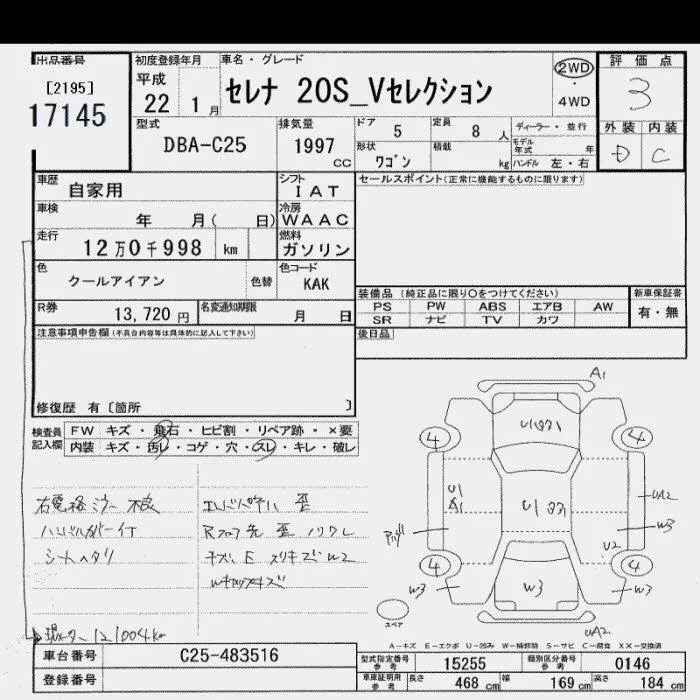 出品番号
[2195]
17145
初度登録年月
平成
22 1 月
車名・グレード
セレナ 20S_Vセレクション
2WD
・
4WD
評価点
3
外装 内装
D C
型式
DBA-C25
排気量
1997
CC
ドア 5
定員 8 人
ディーラー・並行
形状 ワゴン
積載 kg
モデル年式 年
ハンドル 左・右
車歴 自家用
シフト
IAT
セールスポイント(正常に機能するものに限ります)
車検 年 月( 日)
冷房
WAAC
走行 12万0千998 km
燃料
ガソリン
色 クールアイアン 色替
色コード
KAK
装備品 (純正品に限り○をつけてください)
新車保証書
PS PW ABS エアB AW
SR ナビ TV カワ
有・無
R券 13,720 円
名変通知期限 月 日
後日品
注意事項申告欄(不具合内容等は具体的に記入して下さい)
修復歴 有〔箇所 〕
検査員記入欄
FW キズ・飛石・ヒビ割・リペア跡・×要
内装 キズ・汚レ・コゲ・穴・スレ・キレ・破レ
右電格ミラー不良
ハンドルカバー付
シートヘタリ
歪
キズ、E スリキズ W2
現メーター 121004km
A1
4
4
U1
A1
UA2
W3
U2
4
4
W3
W3
W3
UA2
スペア
A-キズ E-エクボ U-凹み W-補修跡 S-サビ C-腐食 XX-交換済
車台番号 C25-483516
登録番号
型式指定番号
参考
15255
類別区分番号
参考
0146
車庫証明用
参考
長さ 468 cm
幅 169 cm
高さ 184 cm